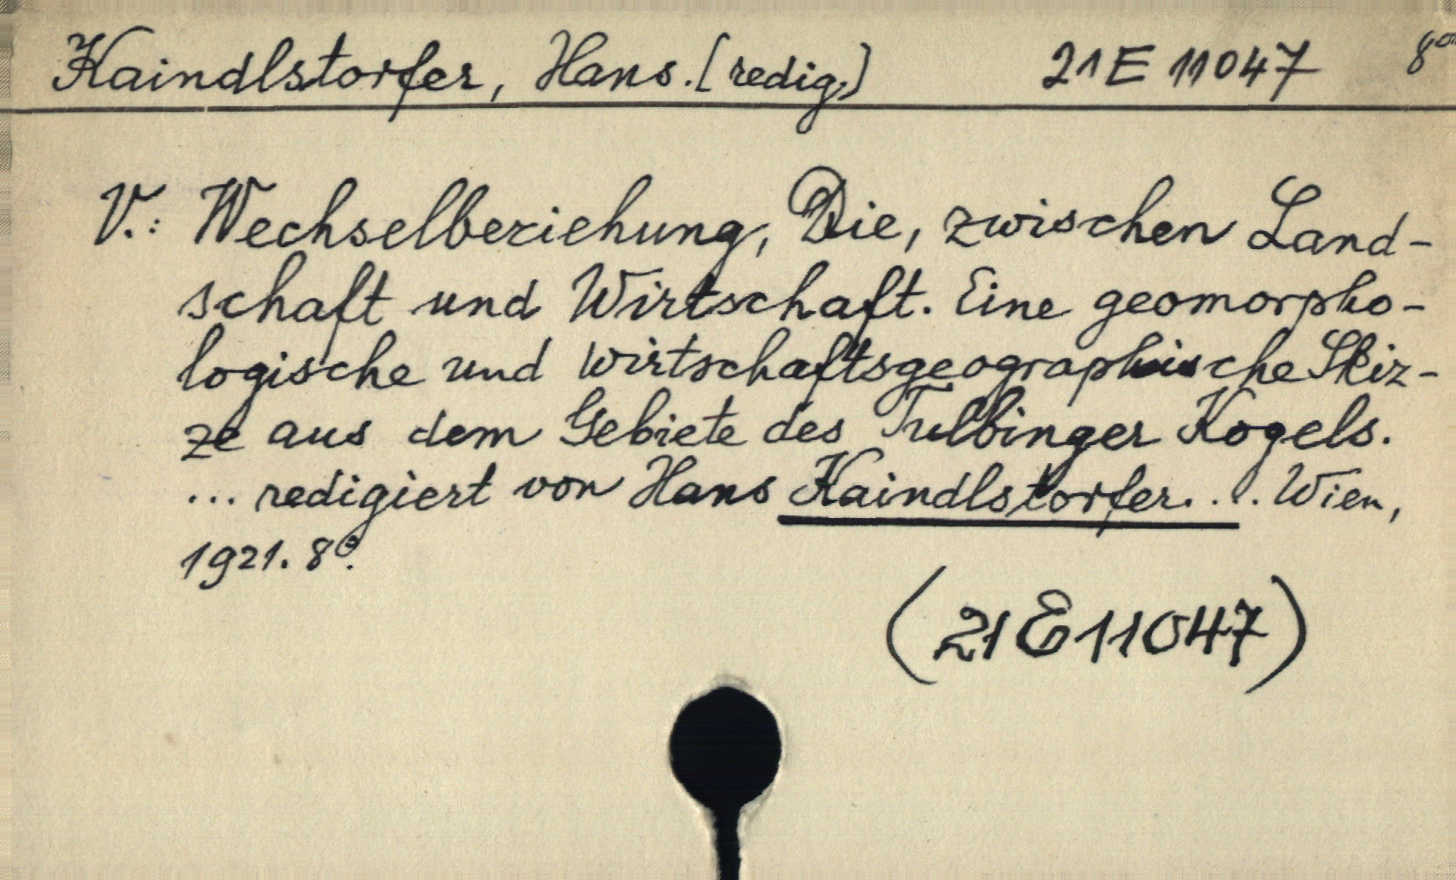 Kaindlstorfer, Hans. [redig.) 21 E 11047 8°
V.: Wechselbeziehung, Die, zwischen Land-
schaft und Wirtschaft. Eine geomorpho-
logische und wirtschaftsgeographische Skiz-
ze aus dem Gebiete des Tulbinger Kogels.
... redigiert von Hans Kaindlstorfer. . . . Wien,
1921. 8°.
(21 E 11047)